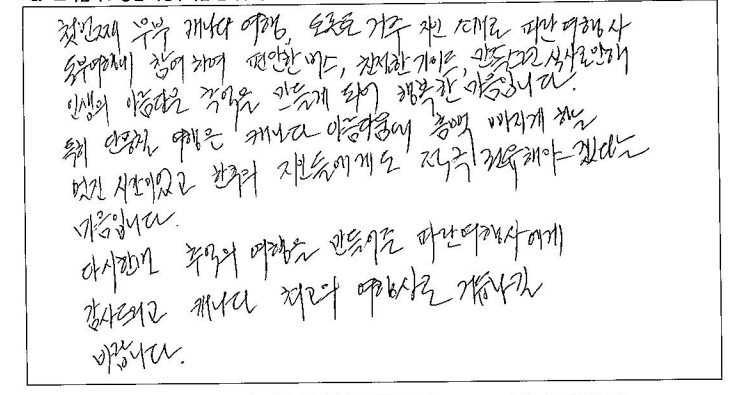 첫번째 부부 캐나다 여행, 토론토 거주 지인 소개로 파란여행사
동부여행에 참여하여 편안한 버스, 친절한 가이드, 만족스런 식사로 인해
인생의 아름다운 추억을 만들게 되어 행복한 마음입니다.
특히 단풍철 여행은 캐나다 아름다움에 흠뻑 빠지게 하는
멋진 시간이었고 한국의 지인들에게도 적극 권유해야겠다는
마음입니다.
다시한번 추억의 여행을 만들어준 파란여행사에게
감사드리고 캐나다 최고의 여행사로 거듭나길
바랍니다.